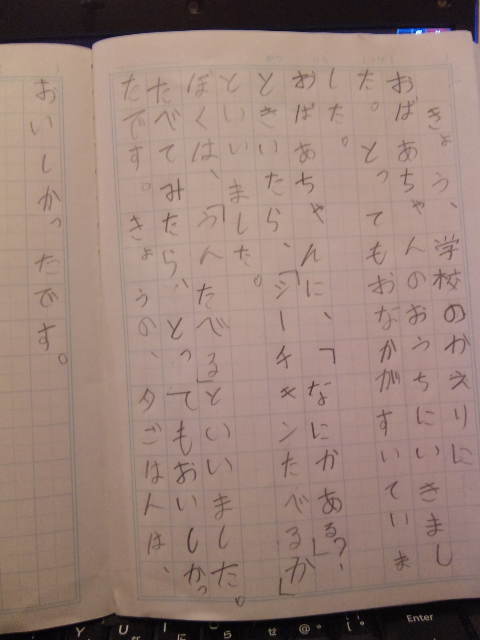 きょう、学校のかえりに
おばあちゃんのおうちにいきまし
た。とってもおなかがすいていま
した。
おばあちゃんに、「なにかある」?
ときいたら、「シーチキンたべるか」
といいました。
ぼくは、「うんたべる」といいました。
たべてみたら、とってもおいしかっ
たです。きょうの、夕ごはんは、
おいしかったです。
Enter